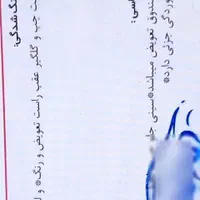 نگ شدگی:
ت چپ و گلگیر عقب راست تعویض و رنگ® و
اسی:
ندوق تعویض میباشد®سینی جلو
وردگی جزئی دارد®